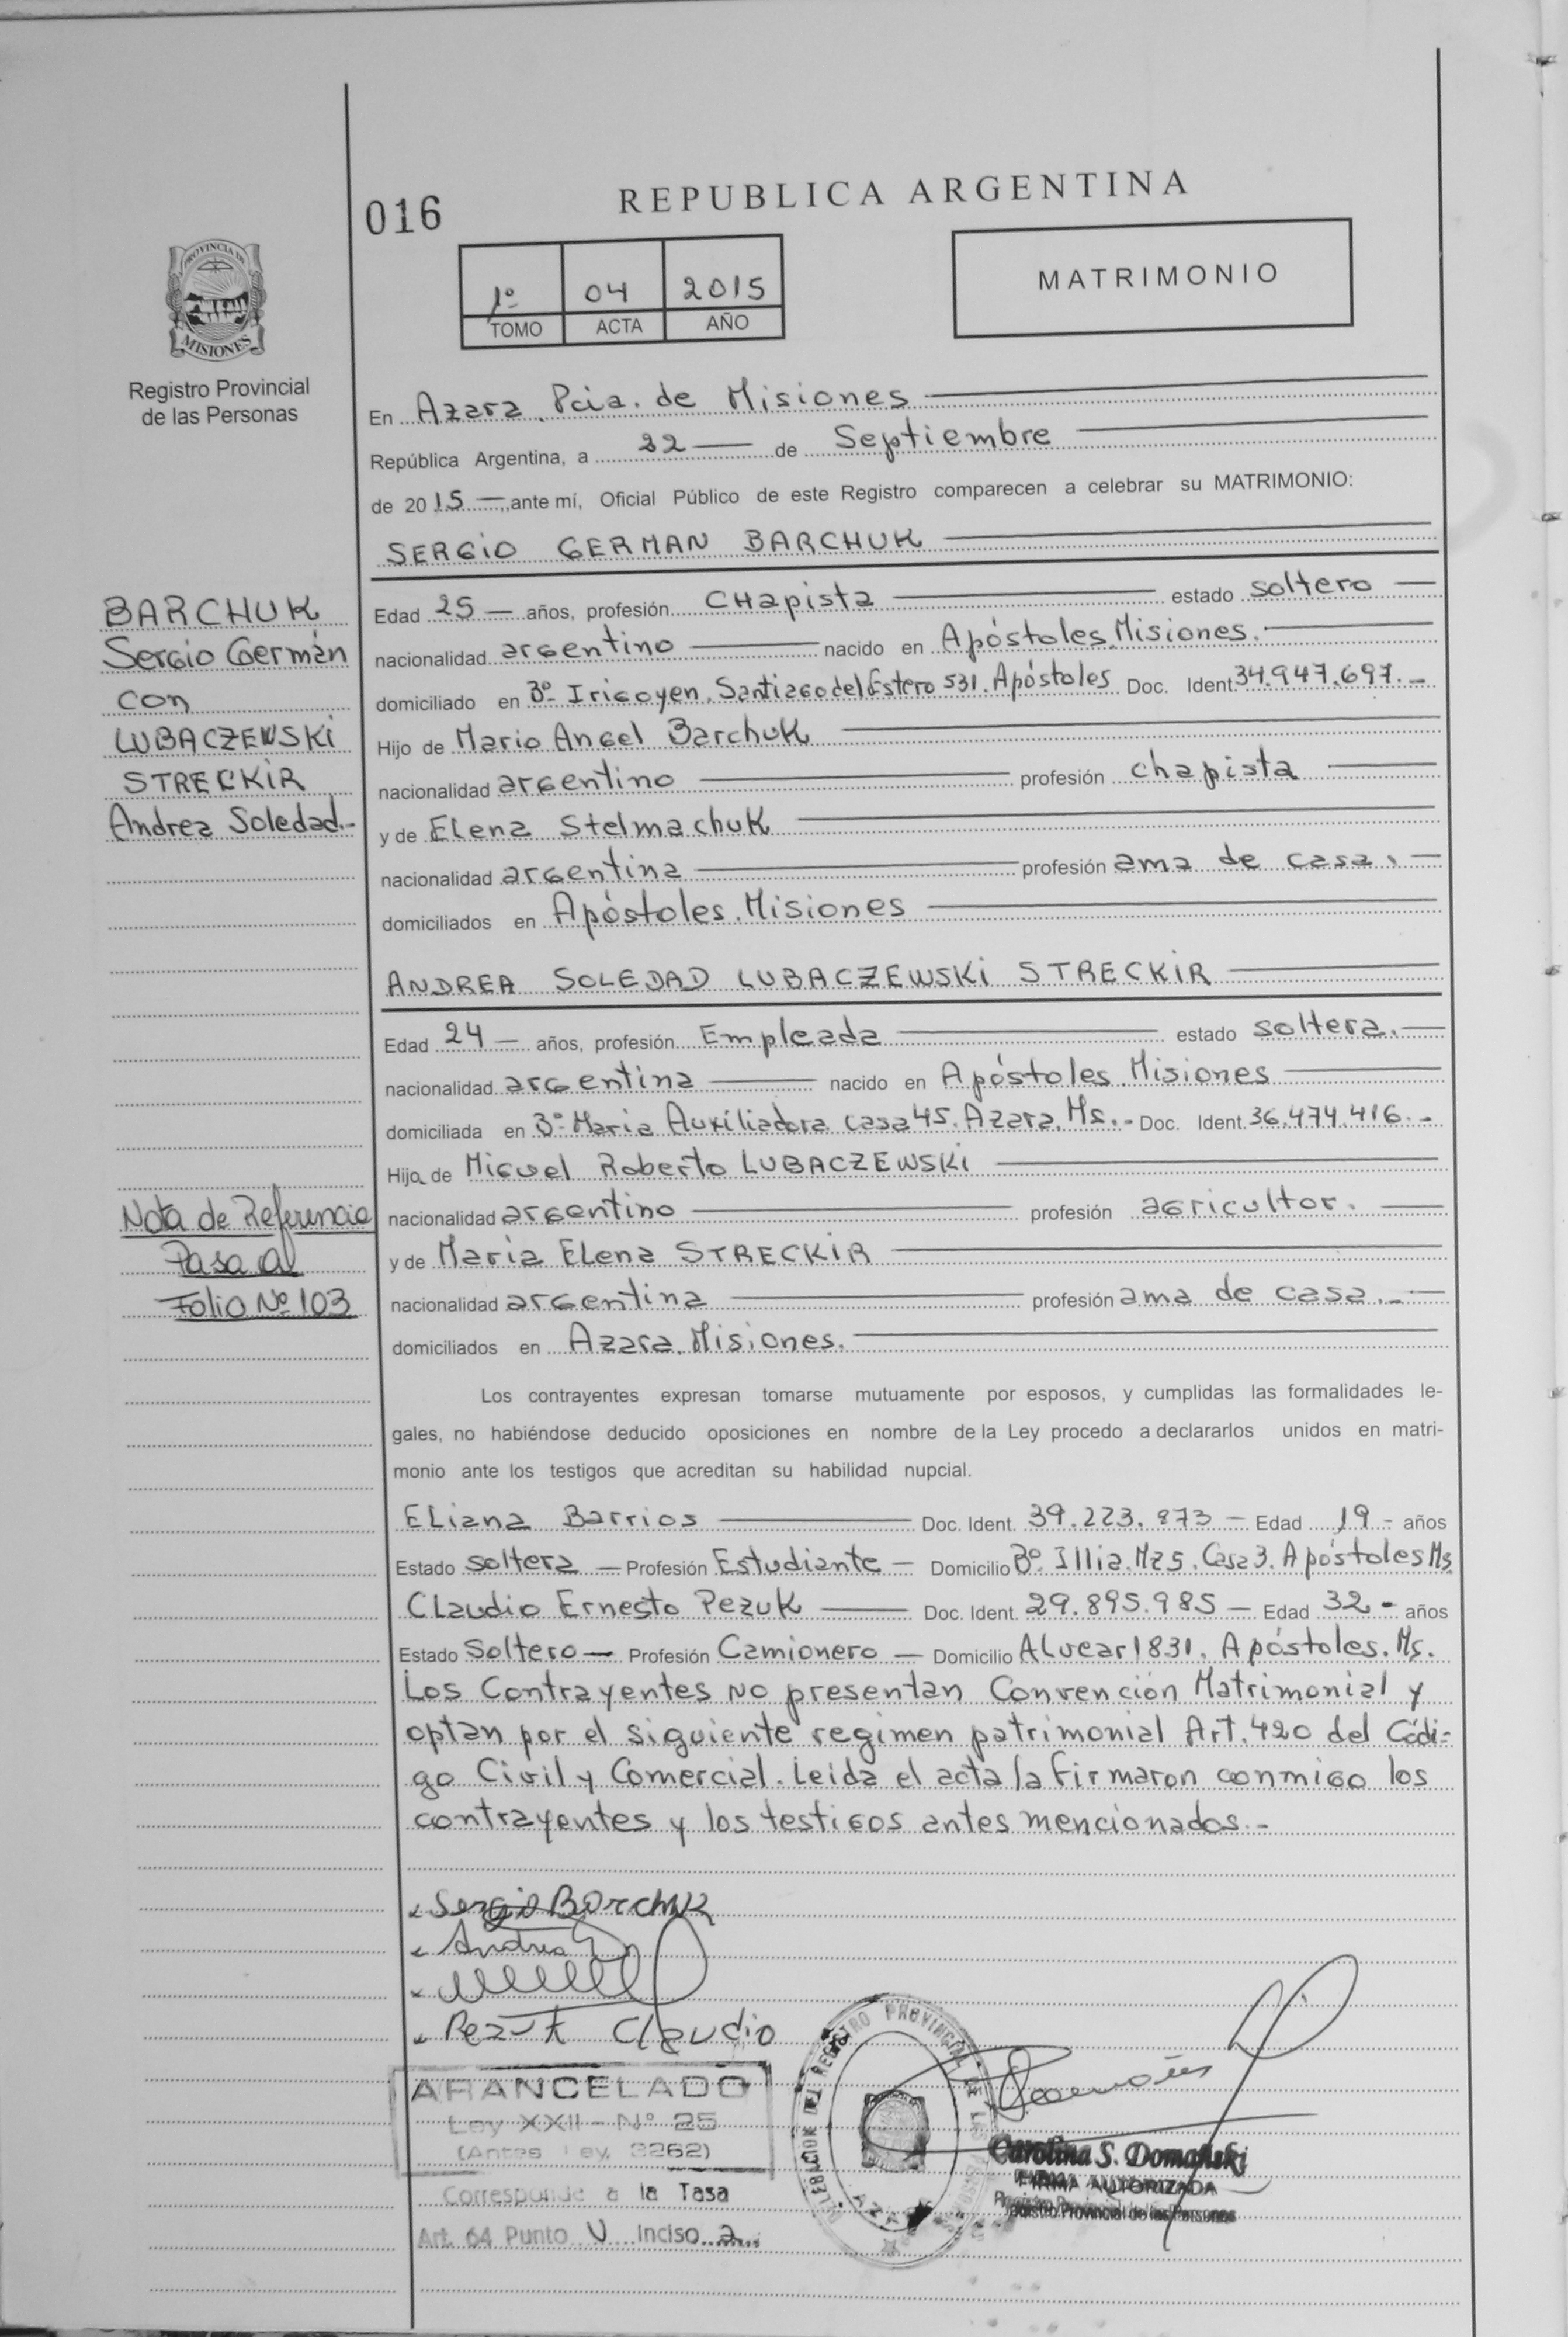 016
REPUBLICA ARGENTINA
PROVINCIA DE
MISIONES
Registro Provincial
de las Personas
1º 04 2015
TOMO ACTA AÑO
MATRIMONIO
En Azara, Pcia. de Misiones
República Argentina, a 22 de Septiembre
de 2015 ante mí, Oficial Público de este Registro comparecen a celebrar su MATRIMONIO:
SERGIO GERMAN BARCHUK
BARCHUK
Sergio Germán
con
LUBACZEWSKI
STRECKIR
Andrea Soledad.-
Edad 25 años, profesión Chapista estado soltero
nacionalidad argentino nacido en Apóstoles, Misiones.
domiciliado en Bº Irigoyen, Santiago del Estero 531. Apóstoles Doc. Ident. 34.947.697.-
Hijo de Mario Angel Barchuk
nacionalidad argentino profesión chapista
y de Elena Stelmachuk
nacionalidad argentina profesión ama de casa.
domiciliados en Apóstoles, Misiones
ANDREA SOLEDAD LUBACZEWSKI STRECKIR
Edad 24 años, profesión Empleada estado soltera.
nacionalidad argentina nacido en Apóstoles, Misiones
domiciliada en Bº Maria Auxiliadora casa 45. Azara, Ms.- Doc. Ident. 36.474.416.-
Hija de Miguel Roberto LUBACZEWSKI
nacionalidad argentino profesión agricultor.
y de Maria Elena STRECKIR
nacionalidad argentina profesión ama de casa.-
domiciliados en Azara, Misiones.
Nota de Referencia
Pasa al
Folio Nº 103
Los contrayentes expresan tomarse mutuamente por esposos, y cumplidas las formalidades le-
gales, no habiéndose deducido oposiciones en nombre de la Ley procedo a declararlos unidos en matri-
monio ante los testigos que acreditan su habilidad nupcial.
Eliana Barrios Doc. Ident. 39.223.873 Edad 19 años
Estado soltera Profesión Estudiante Domicilio Bº Illia. Mz 5. Casa 3. Apóstoles Ms
Claudio Ernesto Pezuk Doc. Ident. 29.895.985 Edad 32 años
Estado Soltero Profesión Camionero Domicilio Alvear 1831. Apóstoles. Ms.
Los Contrayentes NO presentan Convención Matrimonial y
optan por el siguiente regimen patrimonial Art. 420 del Códi-
go Civil y Comercial. Leida el acta la firmaron conmigo los
contrayentes y los testigos antes mencionados.-
Sergio Barchuk
Andrea
Pezuk Claudio
ARANCELADO
Ley XXII - Nº 25
(Antes Ley. 3262)
Corresponde a la Tasa
Art. 64 Punto V Inciso a
DELEGACION DEL REGISTRO PROVINCIAL DE LAS PERSONAS
AZARA
Carolina S. Domañski
FIRMA AUTORIZADA
Registro Provincial de las Personas